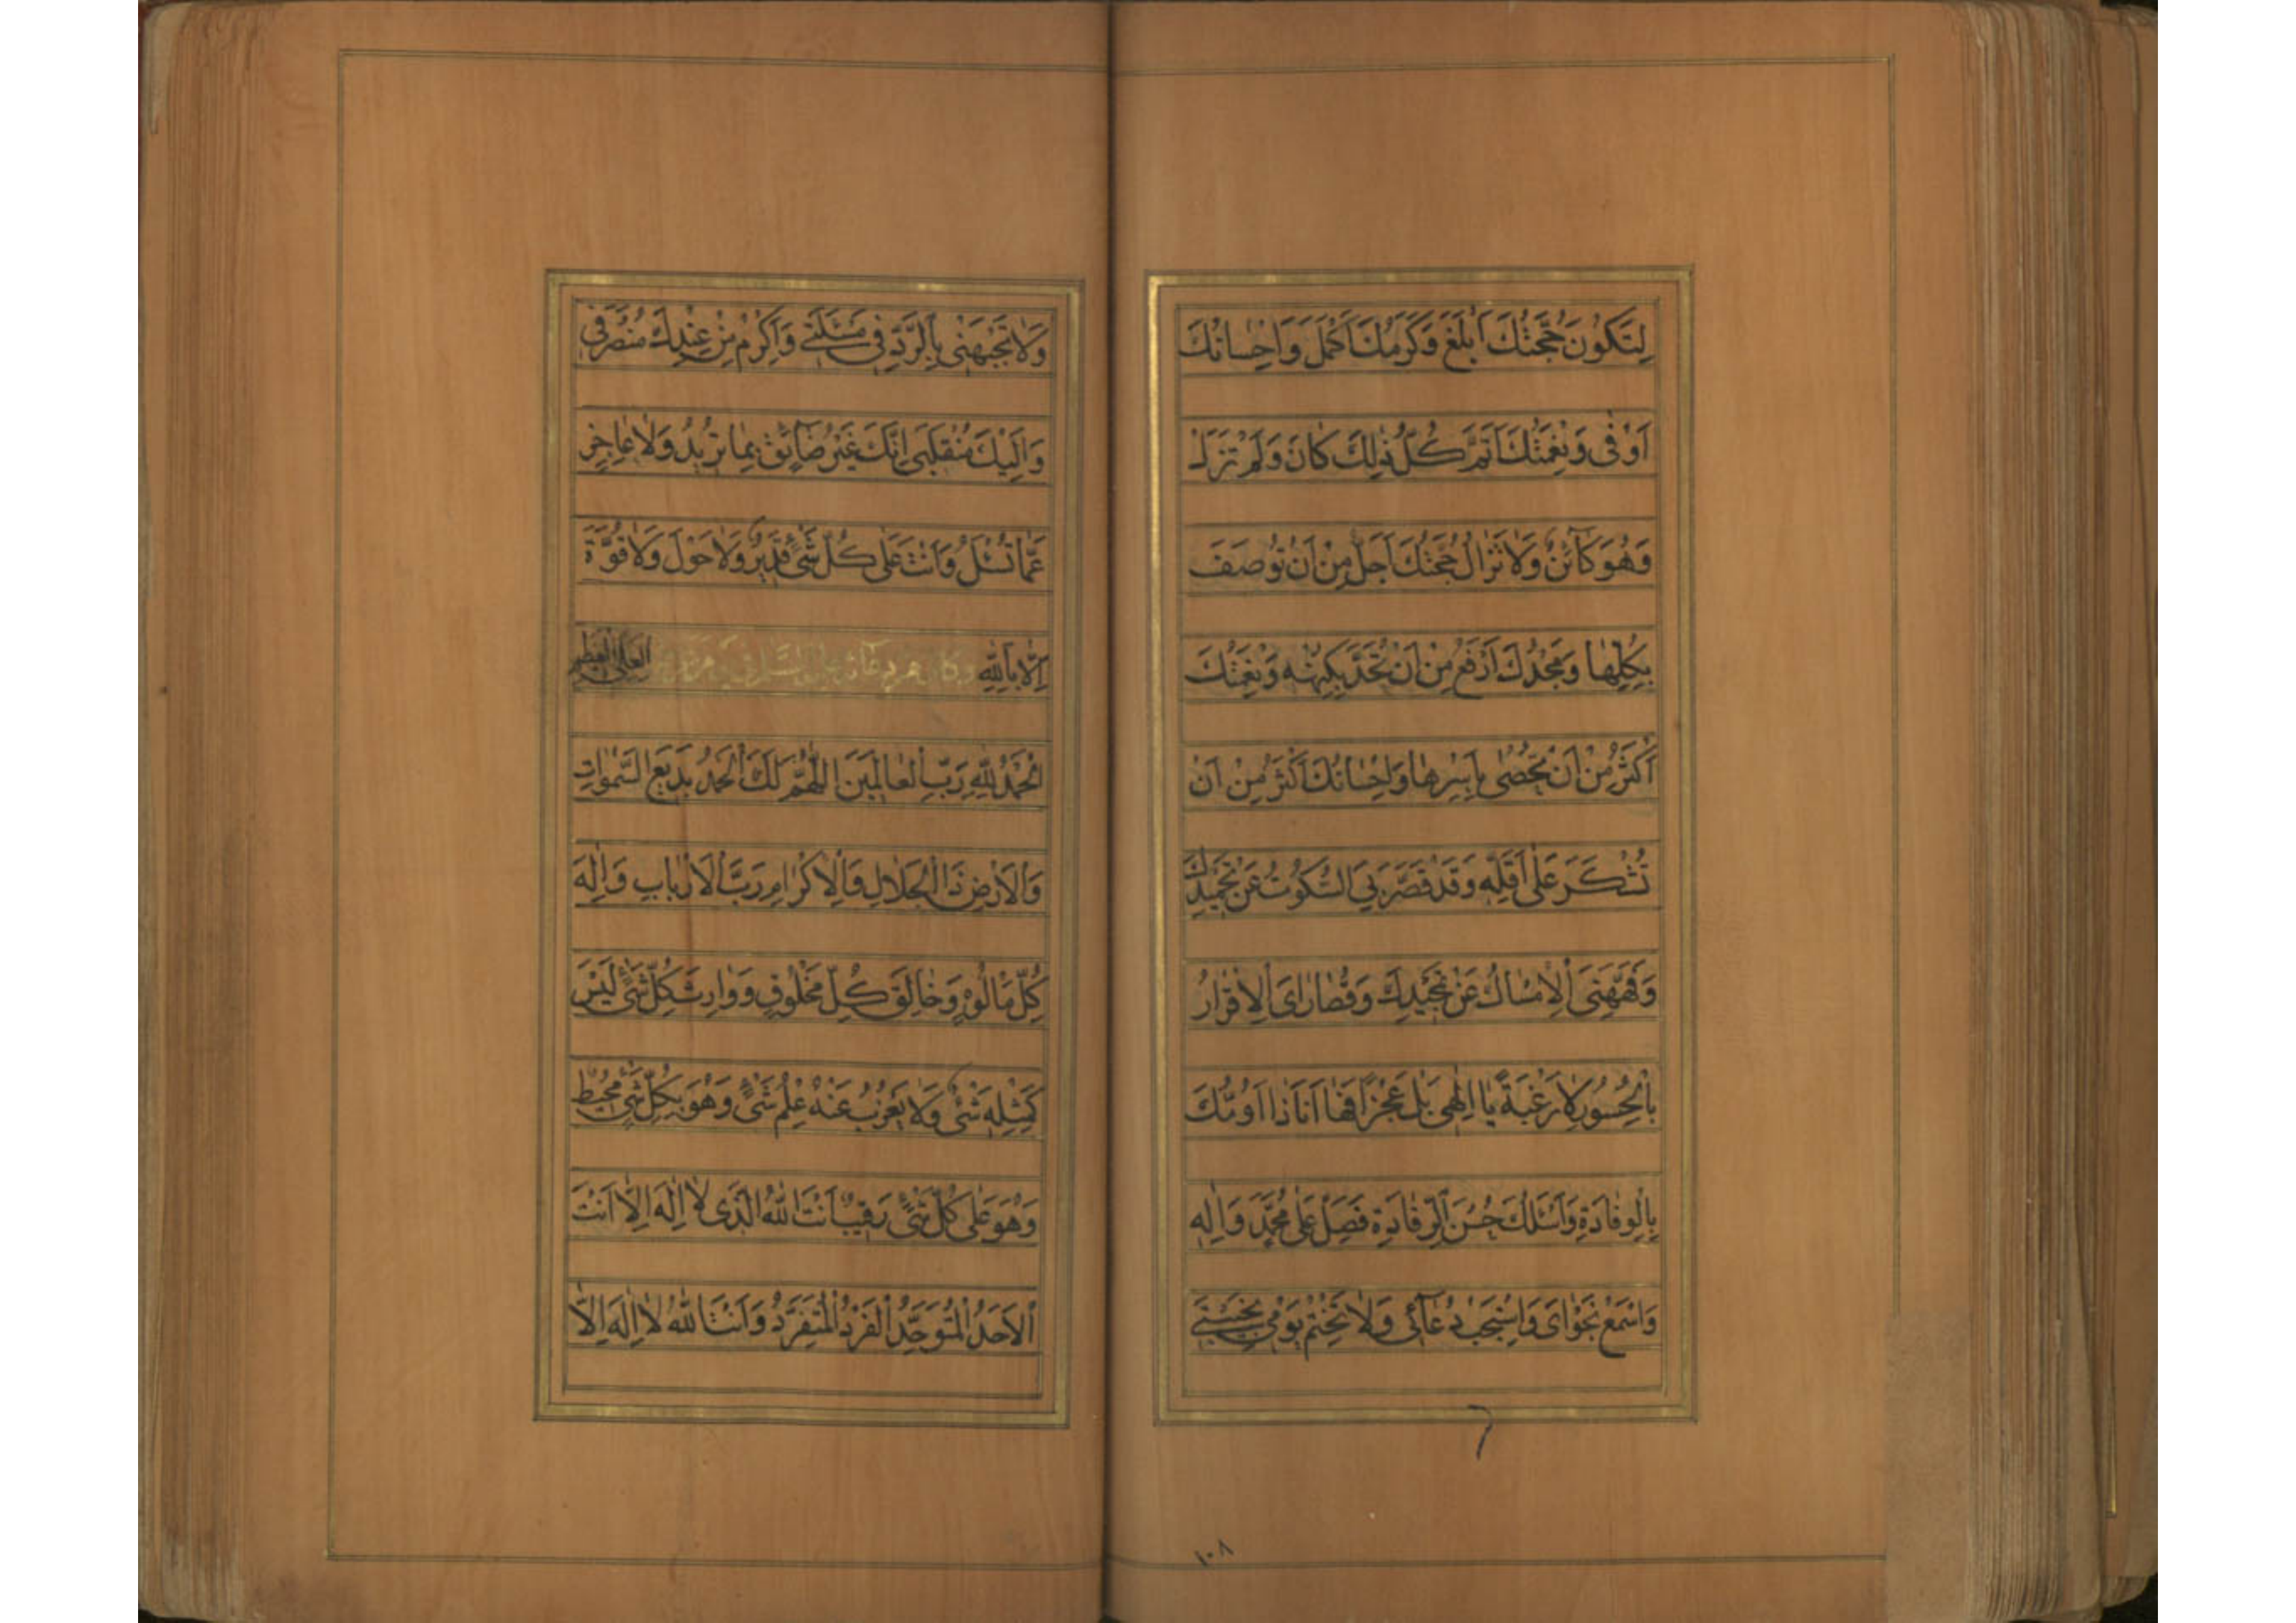 لِتَكُونَ حُجَّتُكَ اَبْلَغَ وَكَرَمُكَ اَكْمَلَ وَاِحْسانُكَ
اَوْفٰى وَنِعْمَتُكَ اَتَمَّ كُلُّ ذٰلِكَ كانَ وَلَمْ تَزَلْ
وَهُوَ كآئِنٌ وَلا تَزالُ حُجَّتُكَ اَجَلُّ مِنْ اَنْ تُوصَفَ
بِكُلِّها وَمَجْدُكَ اَرْفَعُ مِنْ اَنْ تُحَدَّ بِكُنْهِه وَنِعْمَتُكَ
اَكْثَرُ مِنْ اَنْ تُحْصٰى بِاَسْرِها وَاِحْسانُكَ اَكْثَرُ مِنْ اَنْ
تُشْكَرَ عَلٰى اَقَلِّه وَقَدْ قَصَّرَ بِيَ السُّكُوتُ عَنْ تَحْمِيدِكَ
وَفَهَّهَنِيَ الْاِمْساكُ عَنْ تَمْجِيْدِكَ وَقُصاراىَ الْاِقْرارُ
بِالْحُسُورِ لا رَغْبَةً يا اِلٰهِى بَلْ عَجْزًا فَها اَنَا ذا اَؤُمُّكَ
بِالْوِفادَةِ وَاَسْئَلُكَ حُسْنَ الرِّفادَةِ فَصَلِّ عَلٰى مُحَمَّدٍ وَاٰلِه
وَاسْمَعْ نَجْواىَ وَاسْتَجِبْ دُعآئِى وَلا تَخْتِمْ يَوْمِى بِخَيْبَتِى
١٠٨
وَلا تَجْبَهْنِى بِالرَّدِّ فِى مَسْئَلَتِى وَاَكْرِمْ مِنْ عِنْدِكَ مُنْصَرَفِى
وَاِلَيْكَ مُنْقَلَبِى اِنَّكَ غَيْرُ ضآئِقٍ بِما تُرِيدُ وَلا عاجِزٍ
عَمّا تُسْئَلُ وَاَنْتَ عَلٰى كُلِّ شَىْءٍ قَدِيرٌ وَلا حَوْلَ وَلا قُوَّةَ
اِلّا بِاللهِ العَلِىِّ العَظِيمِ وَكانَ مِنْ دُعآئِه عَلَيْهِ السَّلامُ فِى يَوْمِ عَرَفَةَ
اَلْحَمْدُ لِلّٰهِ رَبِّ الْعالَمِينَ اَللّٰهُمَّ لَكَ الْحَمْدُ بَدِيعَ السَّمٰواتِ
وَالْاَرْضِ ذَا الْجَلالِ وَالْاِكْرامِ رَبَّ الْاَرْبابِ وَاِلٰهَ
كُلِّ مَالُوهٍ وَخالِقَ كُلِّ مَخْلُوقٍ وَوارِثَ كُلِّ شَىْءٍ لَيْسَ
كَمِثْلِه شَىْءٌ وَلا يَعْزُبُ عَنْهُ عِلْمُ شَىْءٍ وَهُوَ بِكُلِّ شَىْءٍ مُحِيطٌ
وَهُوَ عَلٰى كُلِّ شَىْءٍ رَقِيبٌ اَنْتَ اللهُ الَّذِى لا اِلٰهَ اِلّا اَنْتَ
الْاَحَدُ الْمُتَوَحِّدُ الْفَرْدُ الْمُتَفَرِّدُ وَاَنْتَ اللهُ لا اِلٰهَ اِلّا